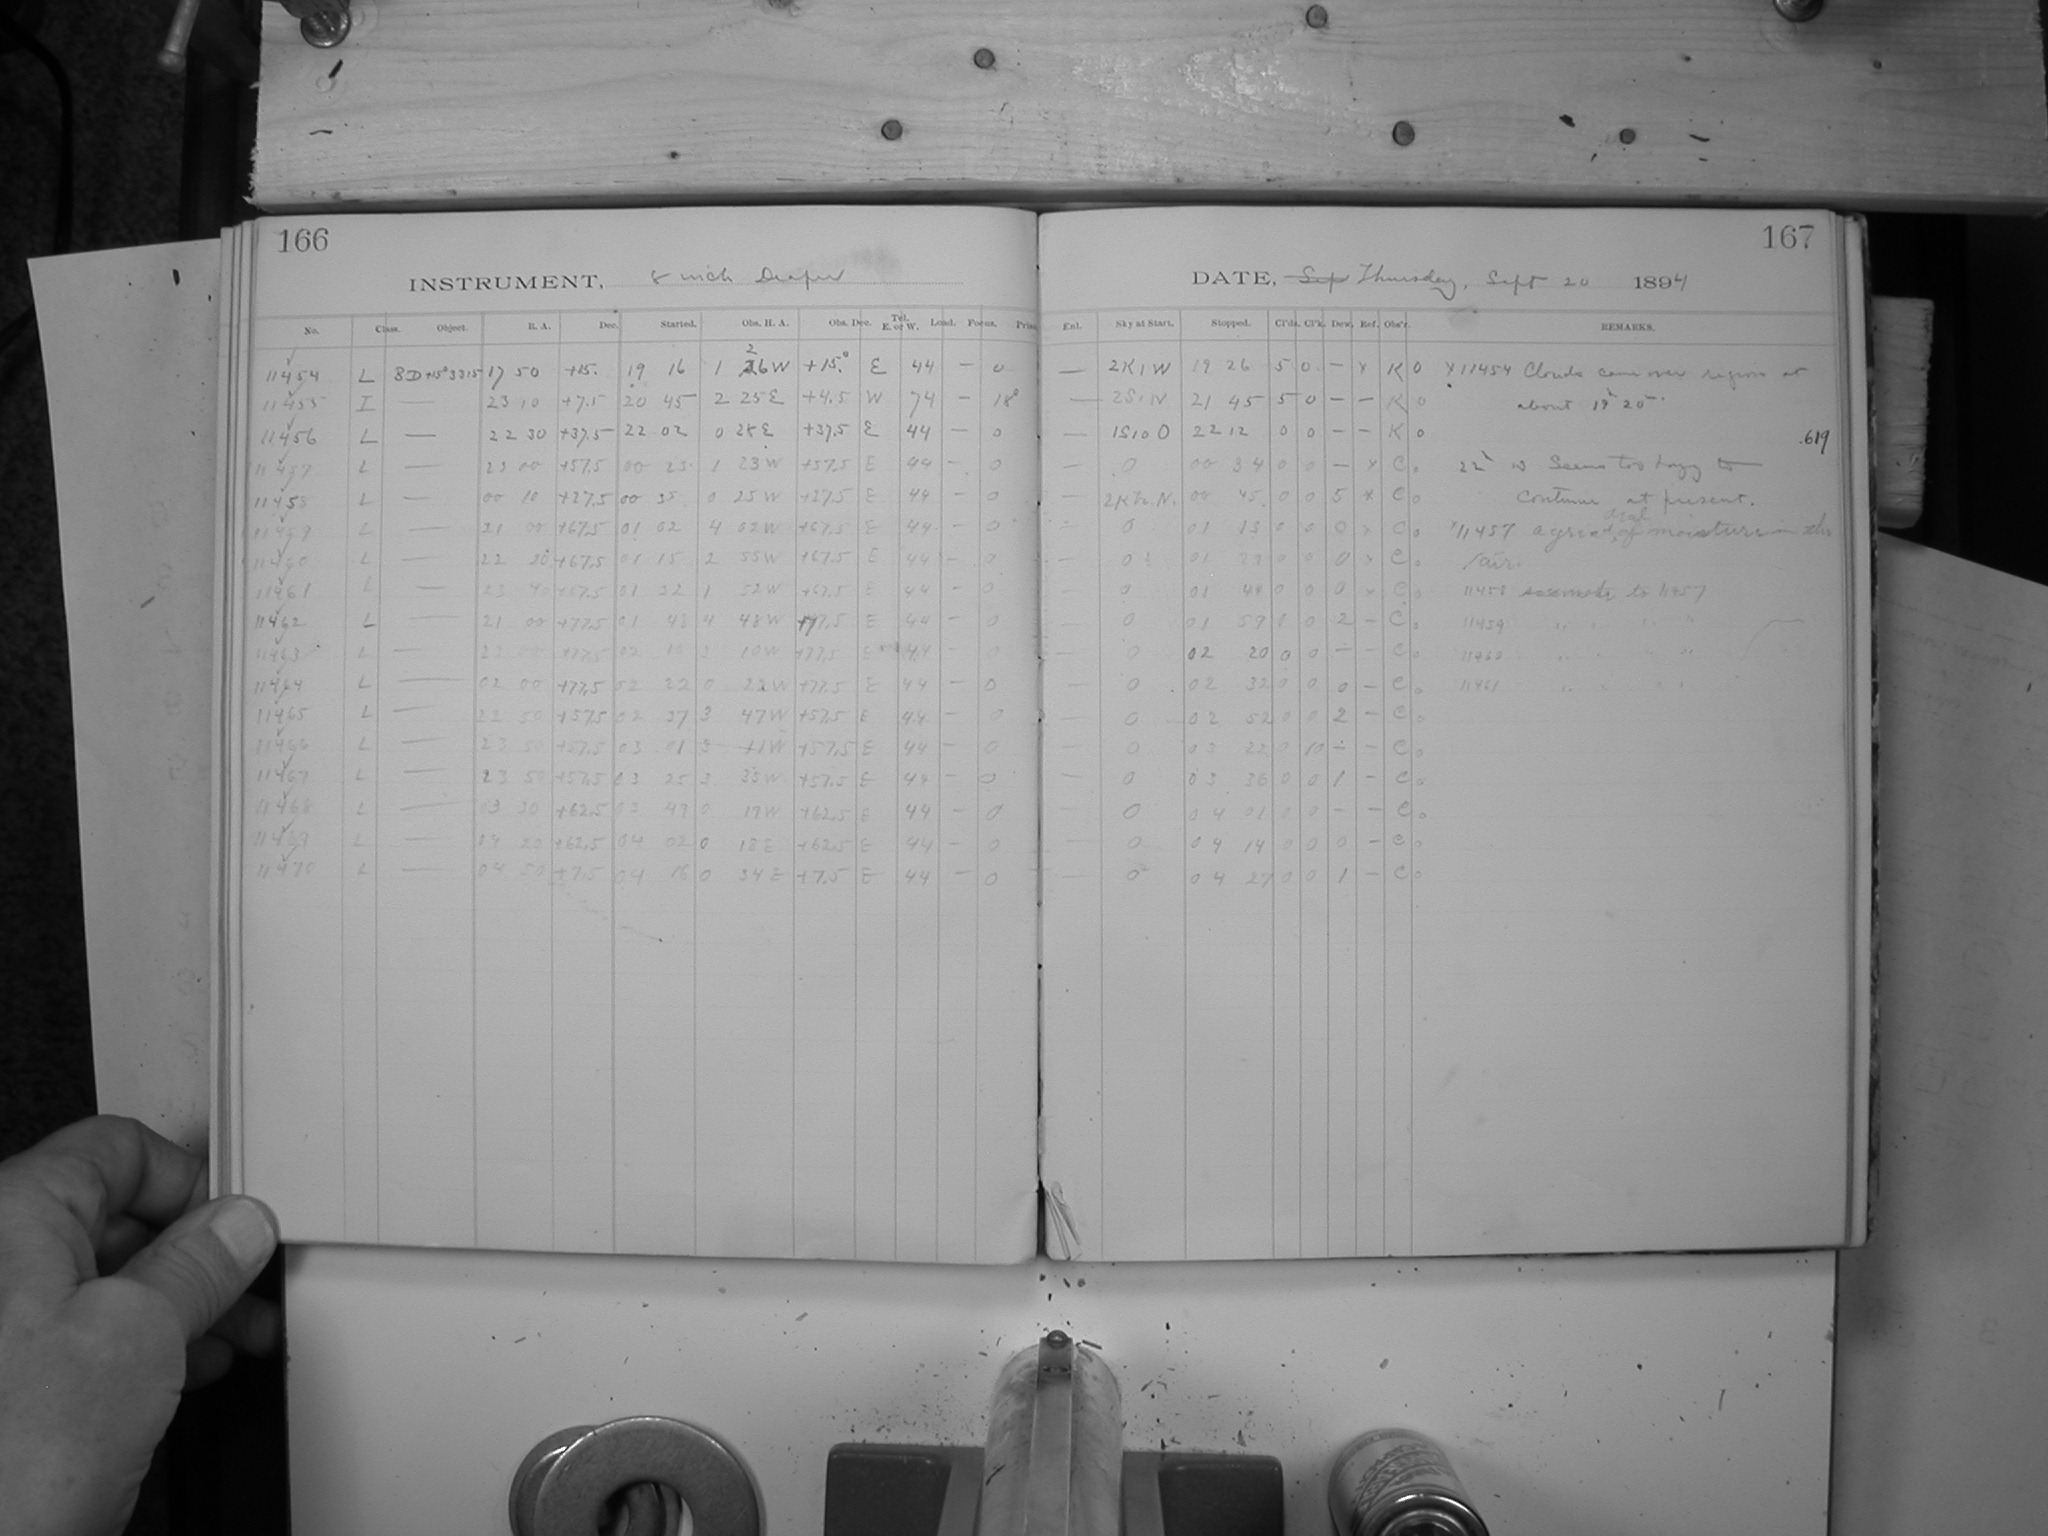 166
INSTRUMENT, 8 inch Draper
No. Class. Object. R. A. Dec. Started. Obs. H. A. Obs. Dec. Tel. E. or W. Load. Focus. Pris
11454 L BD+15°3315 17 50 +15. 19 16 1 26W +15.° E 44 – 0
11455 I — 23 10 +7.5 20 45 2 25E +4.5 W 74 – 18°
11456 L — 22 30 +37.5 22 02 0 28E +37.5 E 44 – 0
11457 L — 23 00 +57.5 00 23 1 23W +57.5 E 44 – 0
11458 L — 00 10 +27.5 00 35 0 25W +27.5 E 44 – 0
11459 L — 21 00 +67.5 01 02 4 02W +67.5 E 44 – 0
11460 L — 22 20 +67.5 01 15 2 55W +67.5 E 44 – 0
11461 L — 23 40 +67.5 01 32 1 52W +67.5 E 44 – 0
11462 L — 21 00 +77.5 01 48 4 48W +77.5 E 44 – 0
11463 L — 23 00 +77.5 02 10 3 10W +77.5 E 44 – 0
11464 L — 02 00 +77.5 02 22 0 22W +77.5 E 44 – 0
11465 L — 22 50 +57.5 02 37 3 47W +57.5 E 44 – 0
11466 L — 23 50 +57.5 03 01 3 11W +57.5 E 44 – 0
11467 L — 23 50 +57.5 03 25 3 35W +57.5 E 44 – 0
11468 L — 03 30 +62.5 03 49 0 19W +62.5 E 44 – 0
11469 L — 04 20 +62.5 04 02 0 18E +62.5 E 44 – 0
11470 L — 04 50 +7.5 04 16 0 34E +7.5 E 44 – 0
167
DATE, Sep Thursday, Sept 20 1894
Enl. Sky at Start. Stopped. Cl'ds. Cl'k. Dew. Ref. Obs'r. REMARKS.
— 2K1W 19 26 5 0 – x K 0 x11454 Clouds came over region at
— 2S1N 21 45 5 0 – – K 0 about 19h 20m.
— 1S10 0 22 12 0 0 – – K 0 .619
— 0 00 34 0 0 – x C 0 22h Seems too hazy to
— 00 45 0 0 5 x C 0 continue at present.
— 0 01 13 0 0 0 x C 0 11457 a great deal of moisture in the
— 0 01 0 0 0 x C 0 air.
— 0 01 44 0 0 0 x C 0 11458 to 11457
— 0 01 59 0 0 2 – C 0 11459 " " " "
— 0 02 20 0 0 – – C 0 11460 " " " "
— 0 02 32 0 0 0 – C 0 11461 " " "
— 0 02 52 0 0 2 – C 0
— 0 03 22 0 10 – – C 0
— 0 03 36 0 0 1 – C 0
— 0 04 01 0 0 – – C 0
— 0 04 14 0 0 0 – C 0
— 0 04 27 0 0 1 – C 0